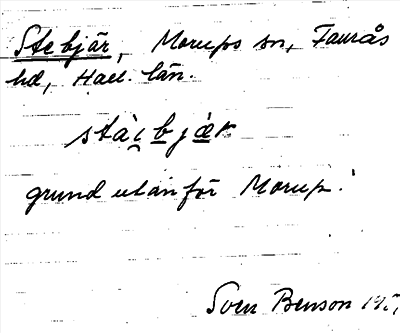 Stebjär, Morups sn, Faurås
hd, Hall. län.
stài̯bjæ̀r
grund utanför Morup.
Sven Benson